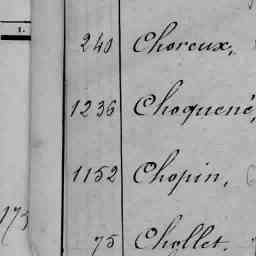 1.
240 Choreux,
1236 Choquené,
1152 Chopin,
173
75 Chollet,